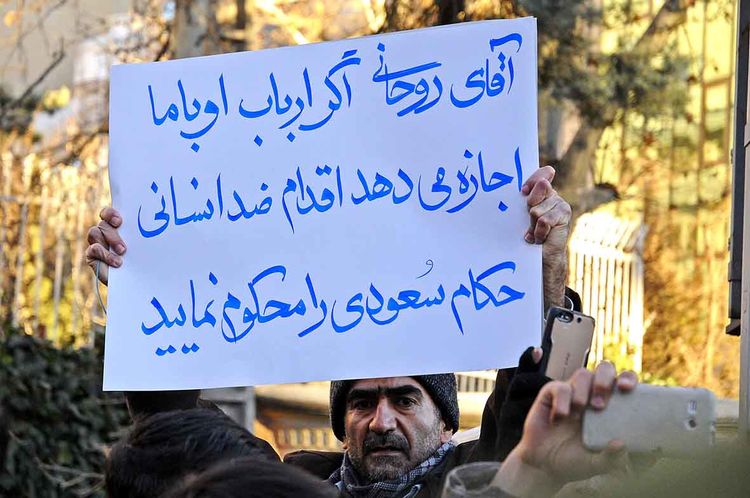 آقای روحانی اگر ارباب اوباما
اجازه می دهد اقدام ضد انسانی
حکام سُعودی را محکوم نمایید